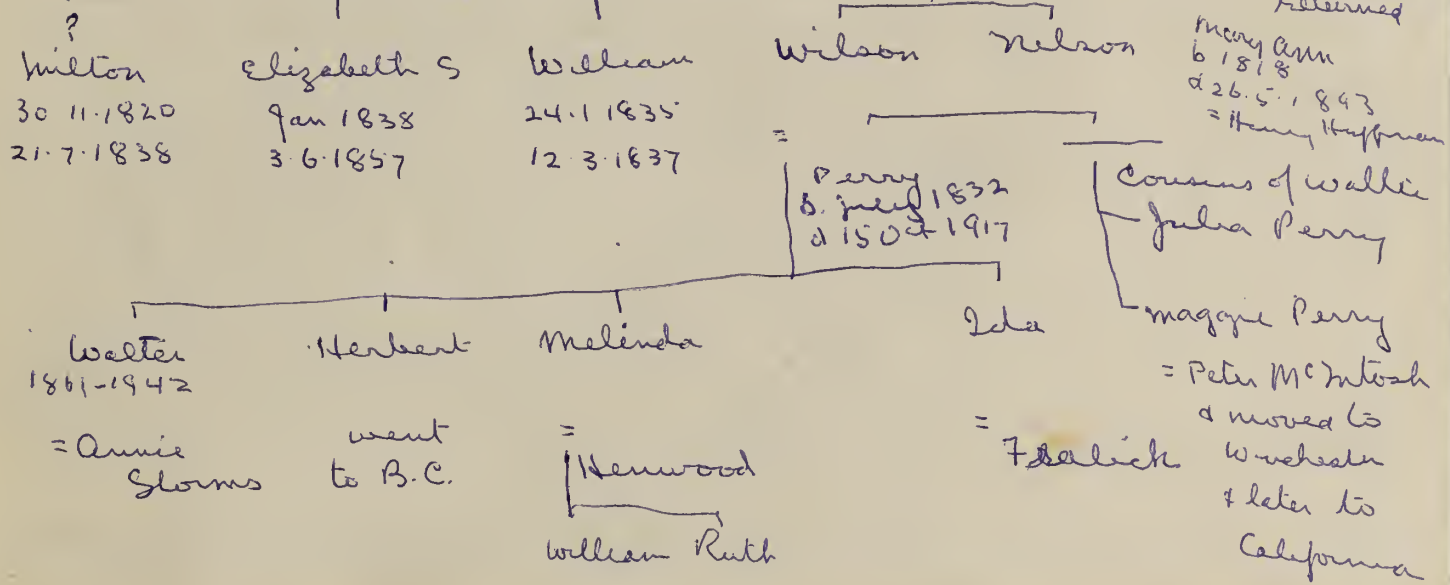 returned
?
Milton
30 11.1820
21.7.1838
Elizabeth S
Jan 1838
3.6.1857
William
24.1 1835
12.3.1837
Wilson
Nelson
Mary Ann
b 1818
d 26.5.1893
= Henry Huffman
=
Perry
b. july 1832
d 15 Oct 1917
Cousins of Wallie
Julia Perry
Maggie Perry
= Peter McIntosh
& moved to
Winchester
& later to
California
Walter
1861-1942
= Annie
Storms
Herbert
went
to B.C.
Melinda
=
Henwood
William Ruth
Ida
=